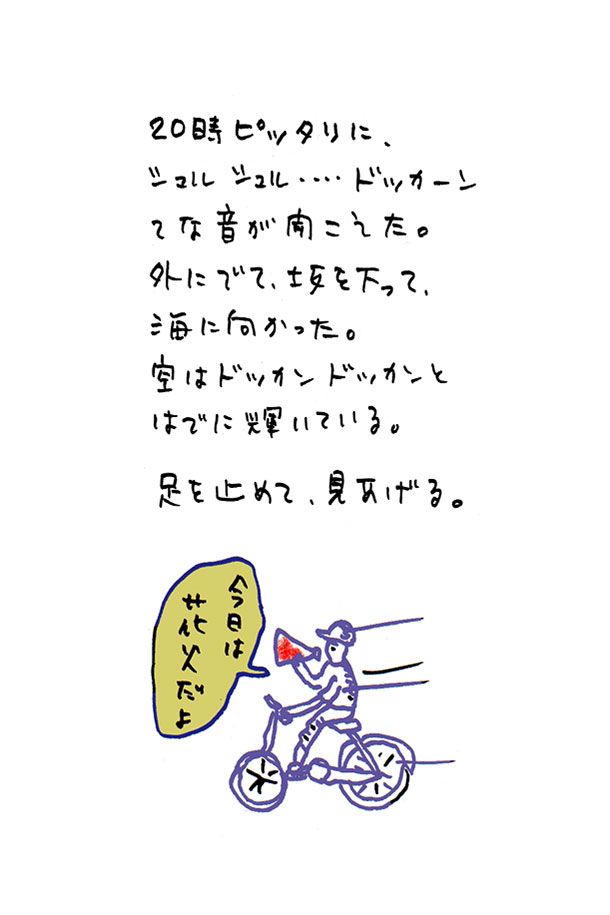 20時ピッタリに、
シュルシュル・・・・ドッカーン
てな音が聞こえた。
外にでて、坂を下って、
海に向かった。
空はドッカンドッカンと
はでに輝いている。
足を止めて、見あげる。
今日は
花火だよ